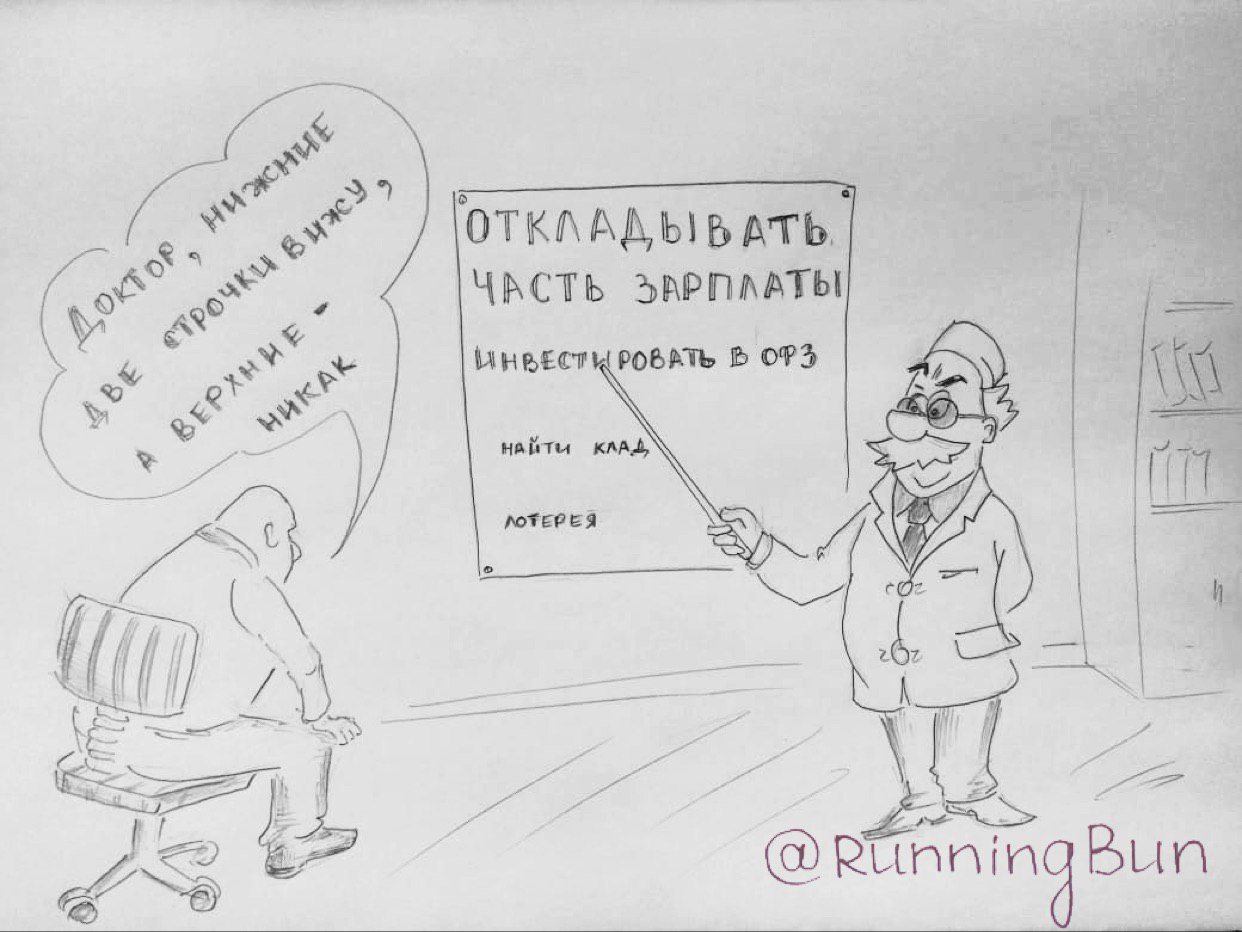 ДОКТОР, НИЖНИЕ
ДВЕ СТРОЧКИ ВИЖУ,
А ВЕРХНИЕ -
НИКАК
ОТКЛАДЫВАТЬ
ЧАСТЬ ЗАРПЛАТЫ
ИНВЕСТИРОВАТЬ В ОФЗ
НАЙТИ КЛАД
ЛОТЕРЕЯ
@RunningBun